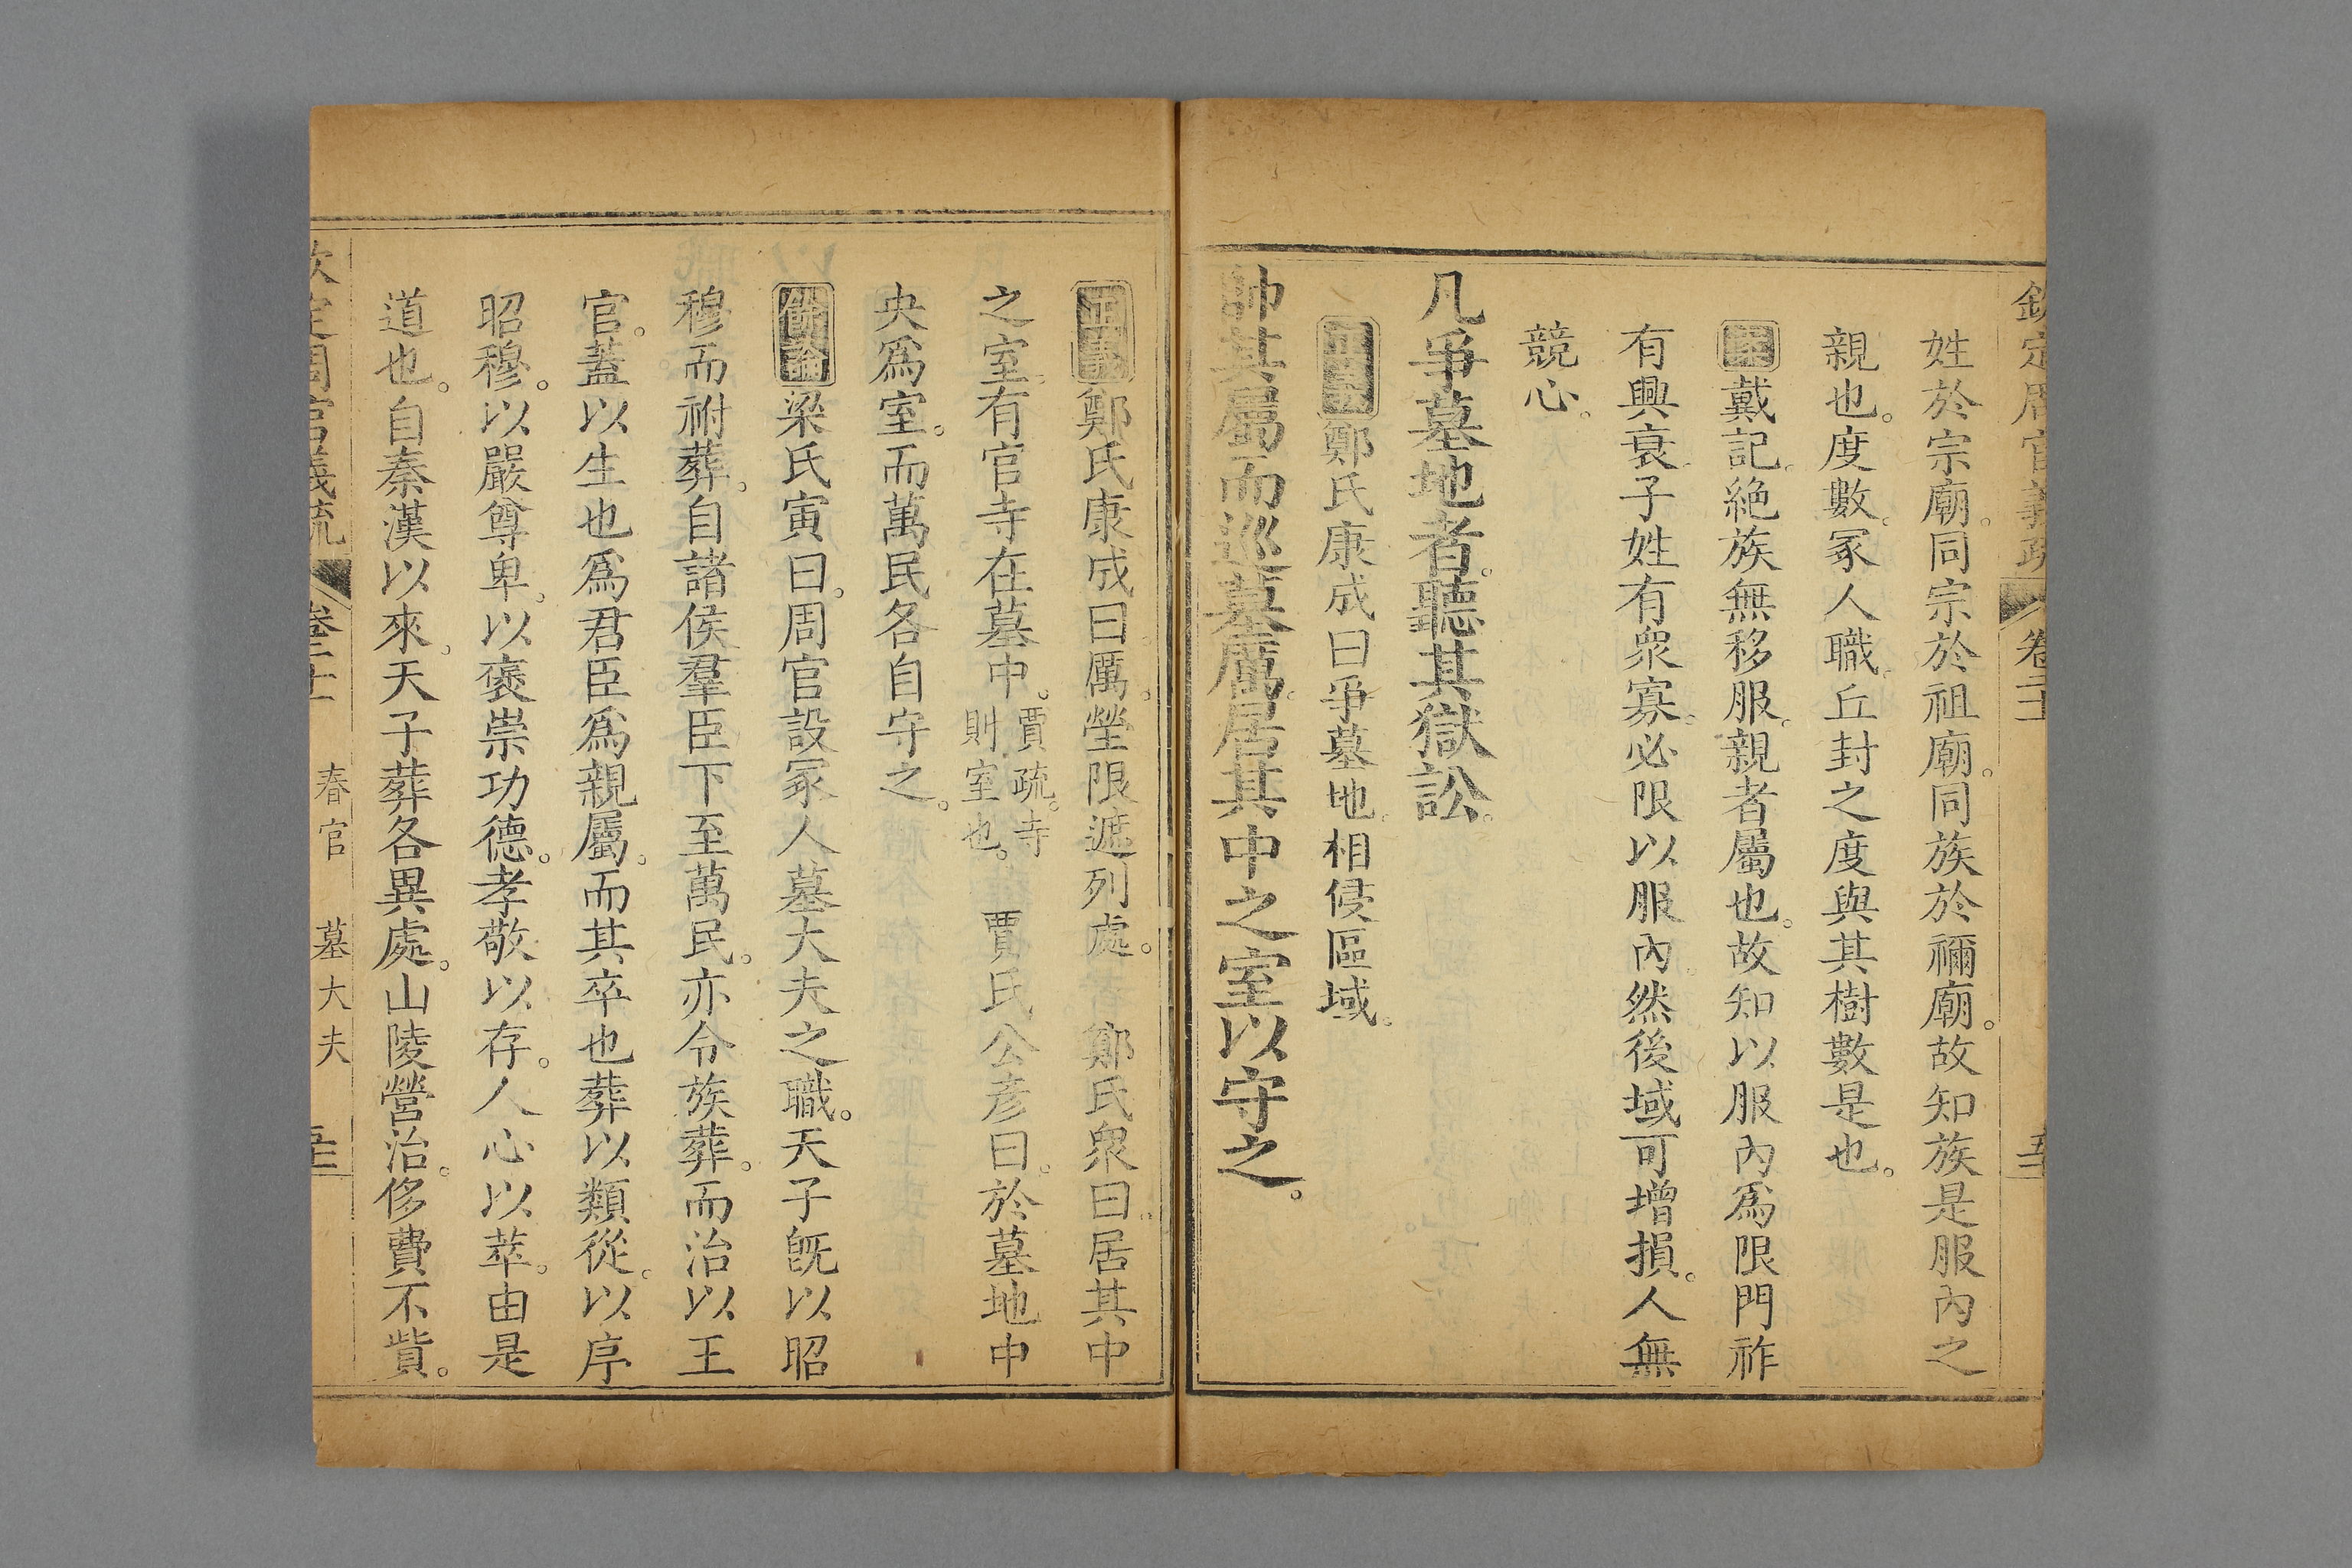 欽定周官義疏 卷二十二
姓於宗廟。同宗於祖廟。同族於禰廟。故知族是服內之
親也。度數。冢人職。丘封之度與其樹數是也。
案戴記。絕族無移服。親者屬也。故知以服內爲限門祚
有興衰。子姓有衆寡。必限以服內。然後域可增損。人無
競心。
凡爭墓地者。聽其獄訟。
正義鄭氏康成曰爭墓地。相侵區域。
帥其屬而巡墓厲。居其中之室以守之。
正義鄭氏康成曰。厲。塋限遮列處。 鄭氏衆曰。居其中
之室。有官寺在墓中。賈疏。寺則室也。 賈氏公彥曰。於墓地中
央爲室。而萬民各自守之。
餘論梁氏寅曰。周官設冢人墓大夫之職。天子旣以昭
穆而祔葬。自諸侯羣臣下至萬民。亦令族葬。而治以王
官。蓋以生也爲君臣爲親屬。而其卒也葬以類從。以序
昭穆。以嚴尊卑。以褒崇功德。孝敬以存。人心以萃。由是
道也。自秦漢以來。天子葬各異處。山陵營治。侈費不貲。
欽定周官義疏 卷二十二 春官 墓大夫